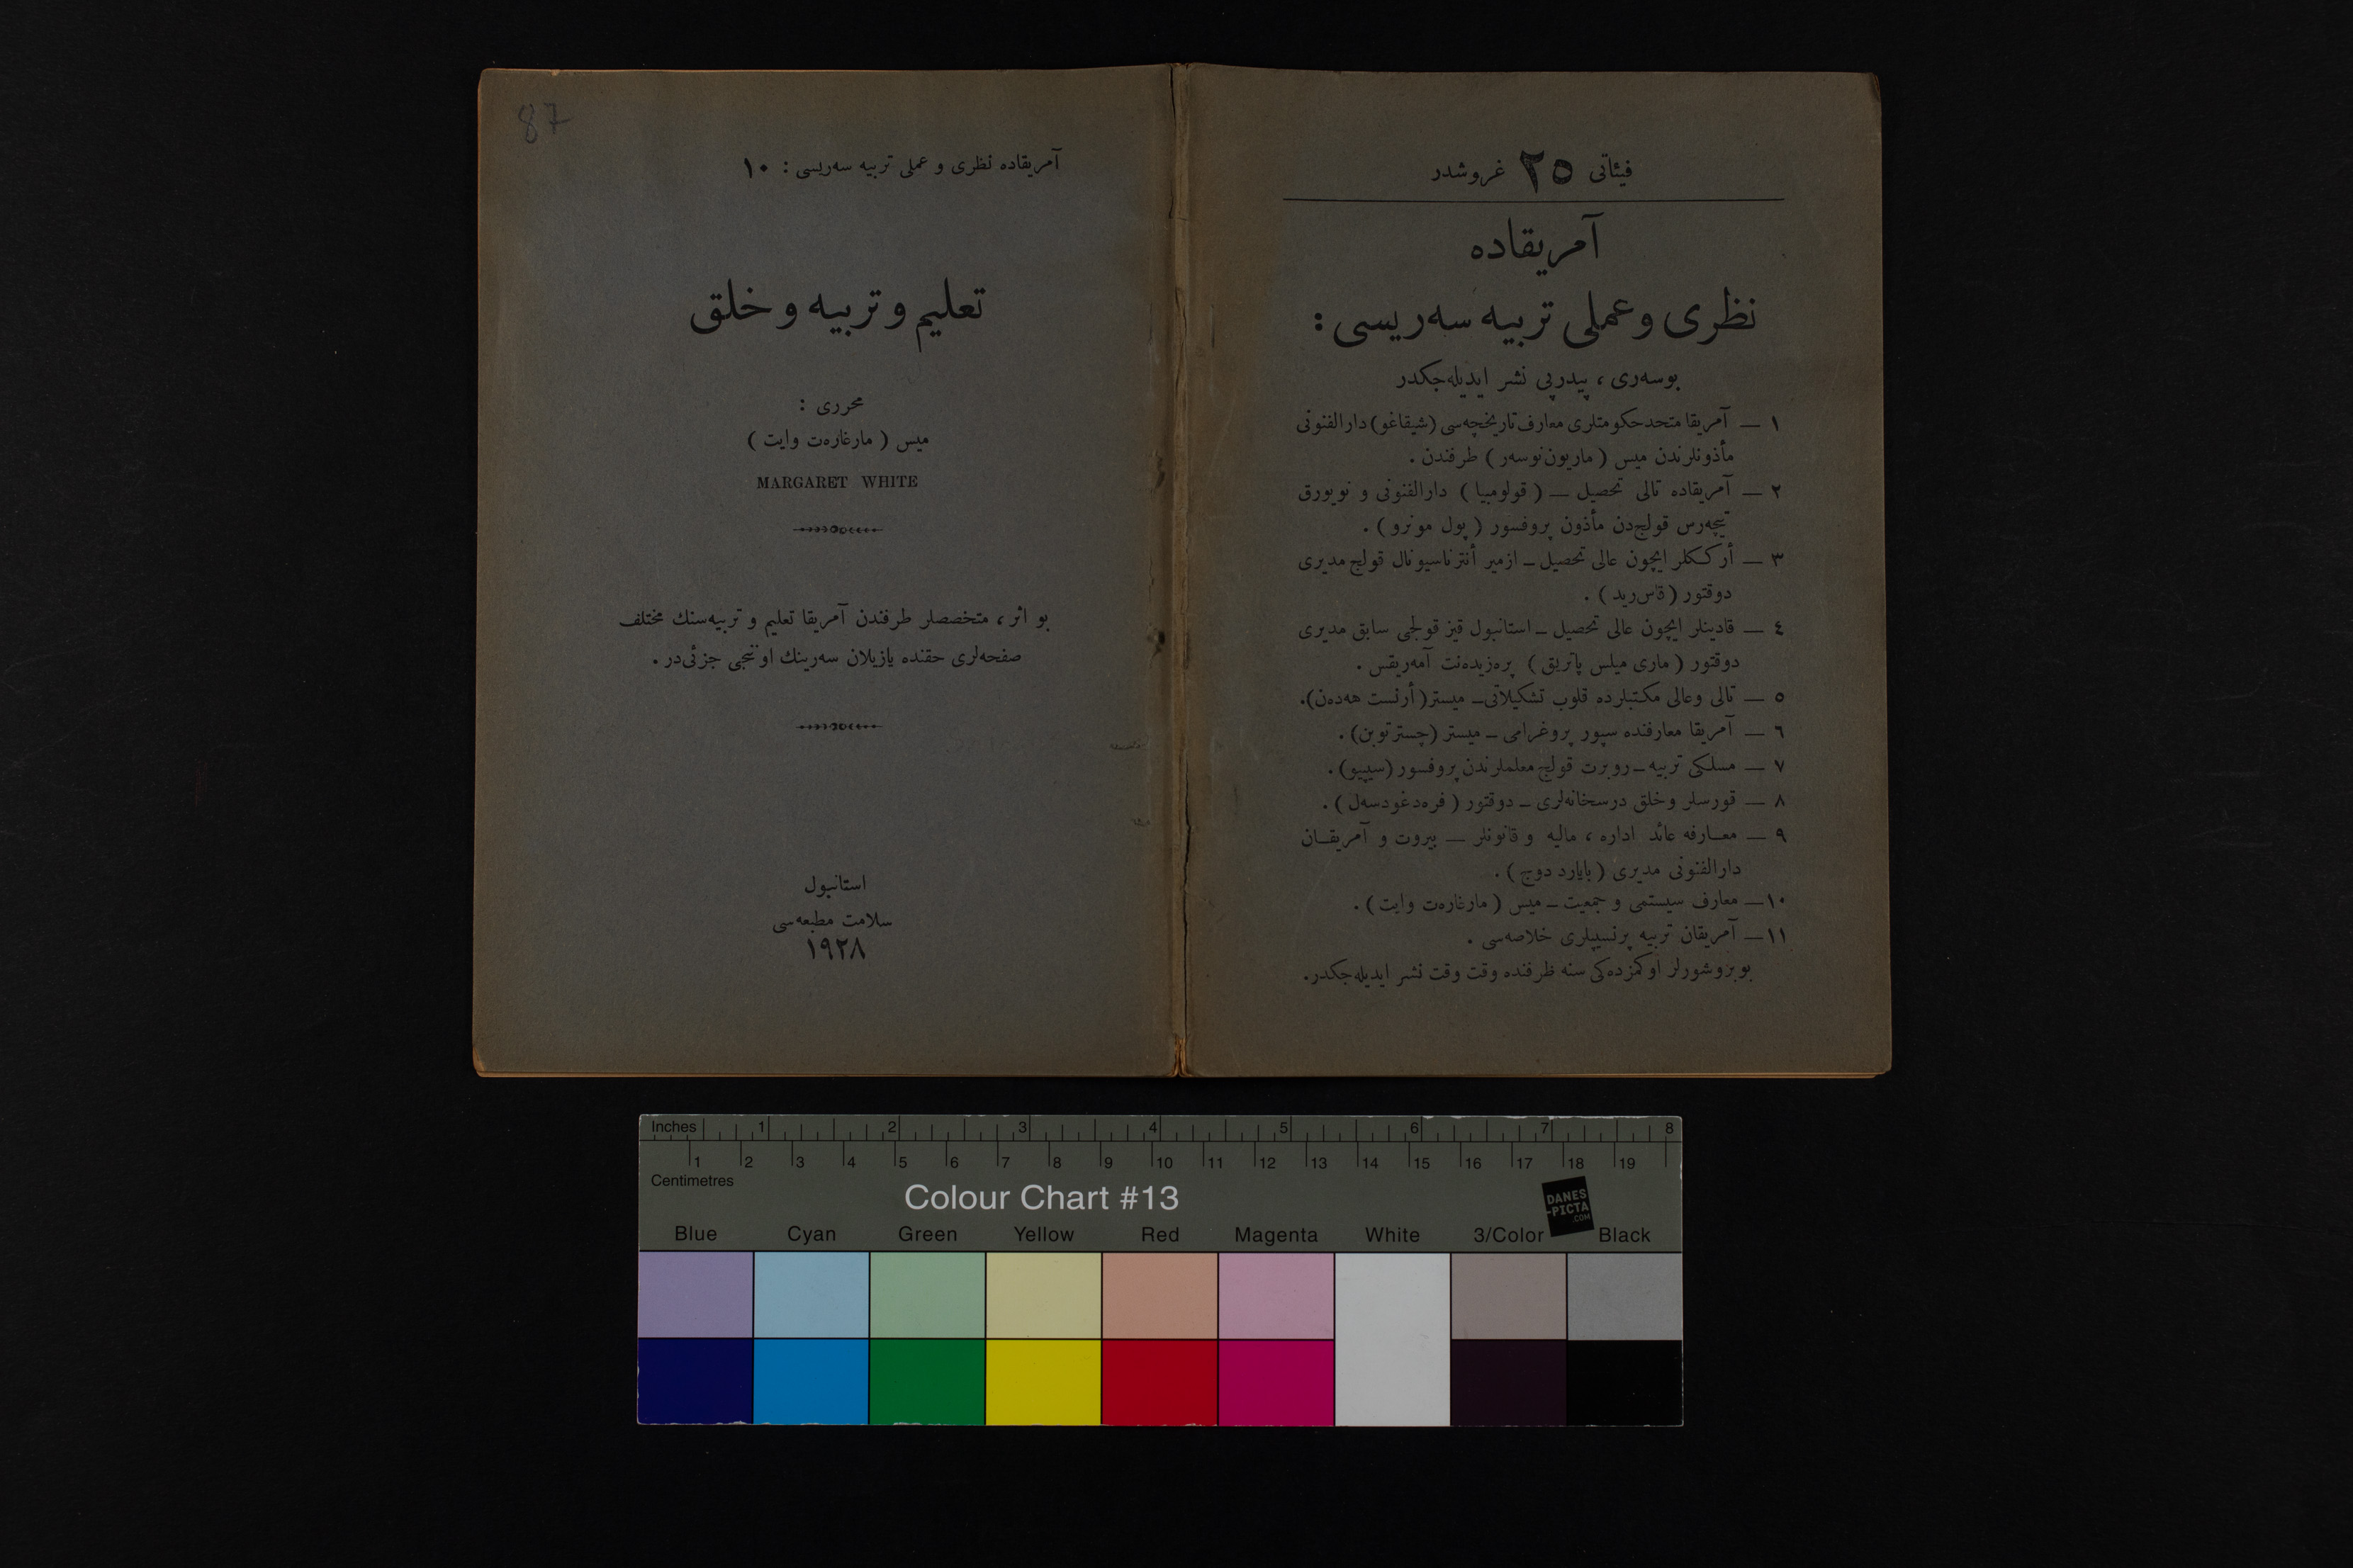 87
آمریقاده نظری و عملی تربیه سه‌ریسی : ١٠
تعلیم و تربیه و خلق
محرری :
میس ( مارغاره‌ت وایت )
MARGARET WHITE
بو اثر ، متخصصلر طرفندن آمریقا تعلیم و تربیه‌سنك مختلف
صفحه‌لری حقنده یازیلان سه‌رینك اوننجی جزئی‌در .
استانبول
سلامت مطبعه‌سی
١٩٢٨
فیئاتی ٢٥ غروشدر
آمریقاده
نظری و عملی تربیه سه‌ریسی :
بوسه‌ری ، پیدرپی نشر ایدیله‌جكدر
١ — آمریقا متحد حكومتلری معارف تاریخچه‌سی (شیقاغو) دارالفنونی
مأذونلرندن میس ( ماریون نوسه‌ر ) طرفندن .
٢ — آمریقاده تالی تحصیل — ( قولومبیا ) دارالفنونی و نویورق
تیچه‌رس قولج‌دن مأذون پروفسور ( پول مونرو ) .
٣ — أرككلر ایچون عالی تحصیل — ازمیر أنترناسیونال قولج مدیری
دوقتور ( قاس‌رید ) .
٤ — قادینلر ایچون عالی تحصیل — استانبول قیز قولجی سابق مدیری
دوقتور ( ماری میلس پاتریق ) پره‌زیده‌نت آمه‌ریقس .
٥ — تالی وعالی مكتبلرده قلوب تشكیلاتی — میستر ( أرنست هه‌ده‌ن ).
٦ — آمریقا معارفنده سپور پروغرامی — میستر (چستر توبن) .
٧ — مسلكی تربیه — روبرت قولج معلملرندن پروفسور (سیپیو) .
٨ — قورسلر وخلق درسخانه‌لری — دوقتور ( فره‌د غودسه‌ل ) .
٩ — معـارفه عائد اداره ، مالیه و قانونلر — بیروت و آمریقـان
دارالفنونی مدیری ( بایارد دوج ) .
١٠ — معارف سیستمی و جمعیت — میس ( مارغاره‌ت وایت ) .
١١ — آمریقان تربیه پرنسیپلری خلاصه‌سی .
بوبروشورلر اوكمزده‌كی سنه ظرفنده وقت وقت نشر ایدیله‌جكدر.
Inches 1 2 3 4 5 6 7 8
1 2 3 4 5 6 7 8 9 10 11 12 13 14 15 16 17 18 19
Centimetres
Colour Chart #13
DANES
-PICTA
.COM
Blue Cyan Green Yellow Red Magenta White 3/Color Black